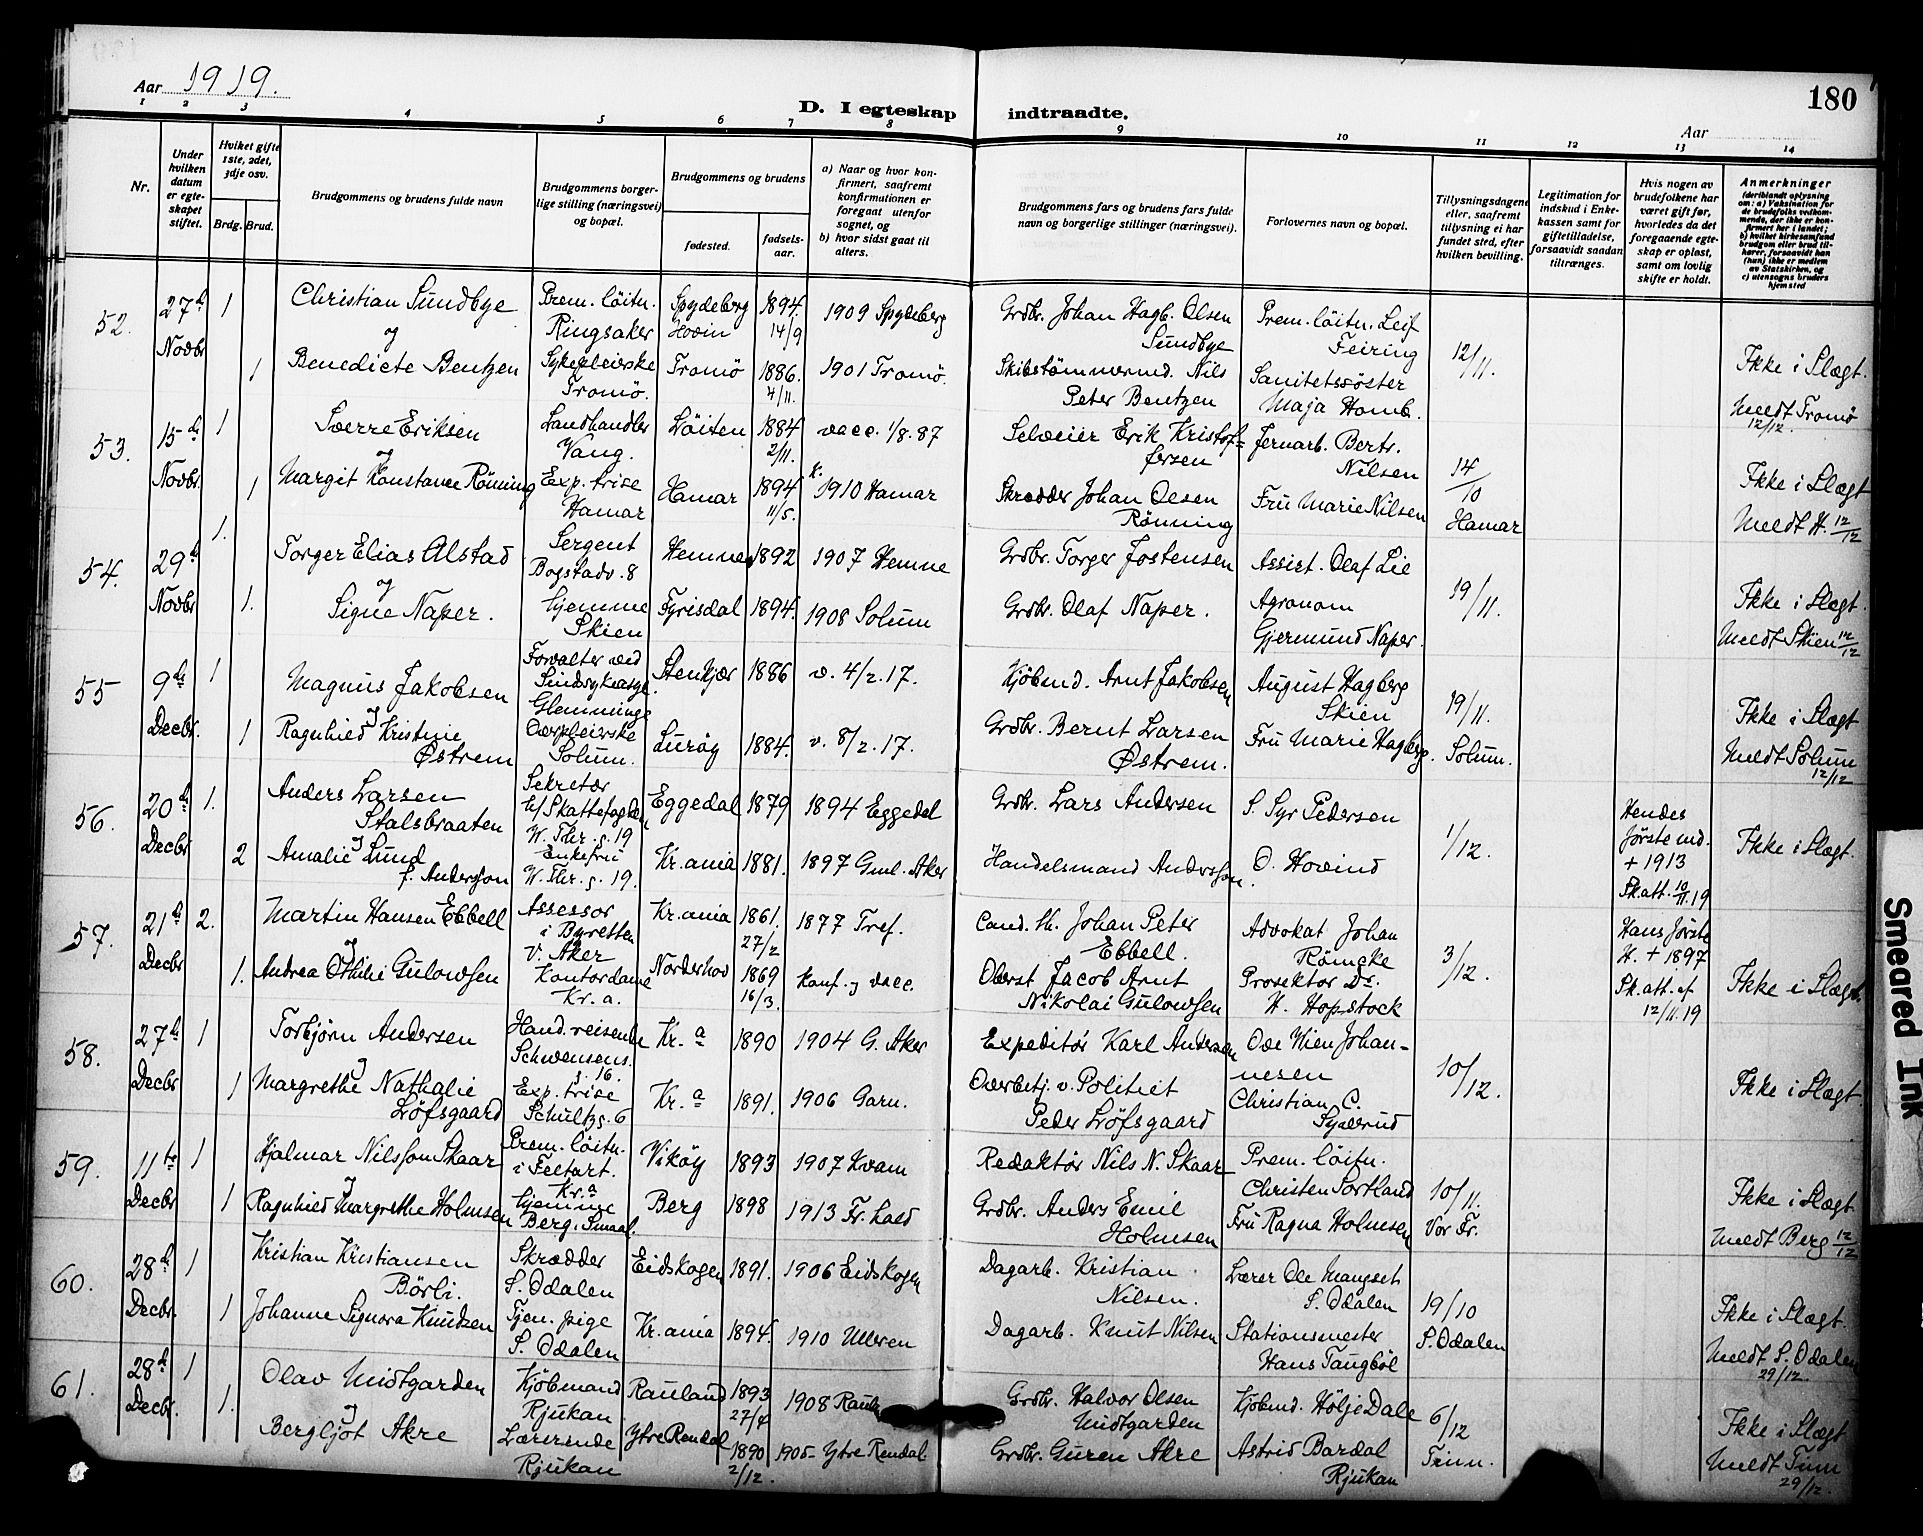 Aar 1919.
D. I egteskap indtraadte.
180
Aar
1 2 3 4 5 6 7 8 9 10 11 12 13 14
Nr.
Under hvilken datum er egte-skapet stiftet.
Hviket gifte 1ste, 2det, 3dje osv.
Brdg. Brud.
Brudgommens og brudens fulde navn
Brudgommens borger-lige stilling (næringsvei) og bopæl.
Brudgommens og brudens
fødested.
fødsels-aar.
a) Naar og hvor kon-firmert, saafremt konfirmationen er foregaat utenfor sognet, og
b) hvor sidst gaat til alters.
Brudgommens fars og brudens fars fulde navn og borgerlige stillinger (næringsvei).
Forlovernes navn og bopæl.
Tillysningsdagene eller, saafremt tillysning ei har fundet sted, efter hvilken bevilling.
Legitimation for indskud i Enke-kassen samt for giftetilladelse, forsaavidt saadan tiltrænges.
Hvis nogen av brudefolkene har været gift før, hvorledes da det foregaaende egte-skap er opløst, samt om lovlig skifte er holdt.
Anmerkninger (deriblandt oplysning om: a) Vaksination for de brudefolks vedkom-mende, der ikke er kon-firmert her i landet; b) hvilket kirkesamfund brudgom eller brud til-hører, forsaavidt han (hun) ikke er medlem av Statskirken, og c) utensogns bruders hjemsted
52. 27de Novbr 1 Christian Sundbye Prem. löitn. Ringsaker Spydeberg Hovin 1894. 14/9 1909 Spydeberg Grdbr. Johan Hagb. Olsen Sundbye Prem. löitn. Leif Feiring 12/11.
og
1 Benedicte Bentzen Sykepleierske Tromö. Tromö 1886. 4/11. 1901 Tromö. Skibstømmermd. Nils Peter Bentzen Sanitetssöster Maja Homb. Ikke i Slægt. Meldt Tromö 12/12.
53. 15de Novbr. 1 Sverre Eriksen Landhandler Vang. Löiten 1884 2/11. vacc. 1/8.87 Selveier Erik Kristof=fersen Jernarb. Bertr. Nilsen 14/10 Hamar
og
1 Margit Konstance Rönning Exp. trise Hamar Hamar 1894 11/5. k. 1910 Hamar Skrædder Johan Olsen Rönning Fru Marie Nilsen Ikke i Slægt Meldt H. 12/12
54. 29de Novbr 1. Torger Elias Alstad Sergent Bogstadv. 8 Hemne 1892 1907 Hemne Grdbr. Torger Jostensen Assist. Olaf Lie 19/11.
og
1. Signe Naper. hjemme Skien Fyrisdal 1894. 1908 Solum Grdbr. Olaf Naper. Agronom Gjermund Naper. Ikke i Slægt. Meldt Skien 12/12
55 9de Decbr. 1 Magnus Jakobsen Forvalter ved Sindsykeasyl. Glemminge Stenkjær 1886 v. 4/2.17. Kjöbmd. Arnt Jakobsen August Hagberg Skien 19/11. Solum.
og
1 Ragnhild Kristine Østrem Overpleierske Solum. Luröy 1884. v. 8/2.17. Grdbr. Bernt Larsen Østrem. Fru Marie Hagberg. Ikke i Slægt Meldt Solum 12/12
56. 20de Decbr 1. Anders Larsen Stalsbraaten Sekretær v/ Skattefogden W. Thr. g. 19 Eggedal 1879 1894 Eggedal Grdbr. Lars Andersen S. Syr Pedersen 1/12. Hendes förste md. + 1913 Sk.att. 10/11.19
og
2 Amalie Lund f. Andersson Enkefru W. Thr. g. 19. Kr.ania 1881. 1897 Gml. Aker Handelsmand Andersson. O. Hovind Ikke i Slægt.
57. 21de Decbr 2. Martin Hansen Ebbell Assessor i Byretten V. Aker Kr.ania 1861. 27/2 1877 Tref. Cand. th. Johan Peter Ebbell. Advokat Johan Römcke 3/12. Hans förste H. + 1897 Sk.att. af 12/11.19
og
1. Andrea Othilie Gulowsen Kontordame Kr.a. Norderhov 1869 16/3. Konf. og vacc. Oberst Jacob Arnt Nikolai Gulowsen Prosektor Dr. H. Hopstock Ikke i Slægt.
58. 27de Decbr 1 Torbjörn Andersen Hand.reisende Schwensens. g. 16. Kr.a 1890 1904 G. Aker Expeditör Karl Andersen Ove Wien Johan-nesen 10/12.
og
1 Margrethe Nathalie Löfsgaard Exp. trise Schultzg. 6 Kr.a 1891. 1906 Garn. Overbetj. v. Politiet Peder Löfsgaard Christian C. Syverud Ikke i Slægt.
59. 11te Decbr 1 Hjalmar Nilsson Skaar Prem. löitn. i Feltart. Kr.a Viköy 1893 1907 Kvam Redaktör Nils N. Skaar Prem. löitn. Christen Sortland 10/11. Vor Fr.
og
1 Ragnhild Margrethe Holmsen hjemme Berg. Smaal. Berg 1898 1913 Fr. hald Grdbr. Anders Emil Holmsen Fru Ragna Holmsen Ikke i Slægt Meldt Berg 12/12
60. 28de Decbr. 1 Kristian Kristiansen Börli. Skrædder S. Odalen Eidskogen 1891. 1906 Eidskogen Dagarb. Kristian Nilsen. Lærer Ole Mangset S. Odalen 19/10 S. Odalen
1 Johanne Signora Knudsen Tjen. pige S. Odalen Kr.ania 1894. 1910 Ulleren Dagarb. Knut Nilsen Stationsmester Hans Taugböl Ikke i Slægt. Meldt S. Odalen 29/12.
61. 28de Decbr. 1 Olav Midtgarden Kjöbmand Rjukan Rauland 1893 27/4 1908 Raul Grdbr. Halvor Olsen Midtgarden Kjöbmd. Hölje Dale 6/12 Tinn.
og
1. Bergljot Akre Lærerinde Rjukan Ytre Rendal 1890 2/12. 1905 Ytre Rendal Grdbr. Guren Akre Astrid Bardal Rjukan Ikke i Slægt Meldt Tinn 29/12.
Smeared Ink